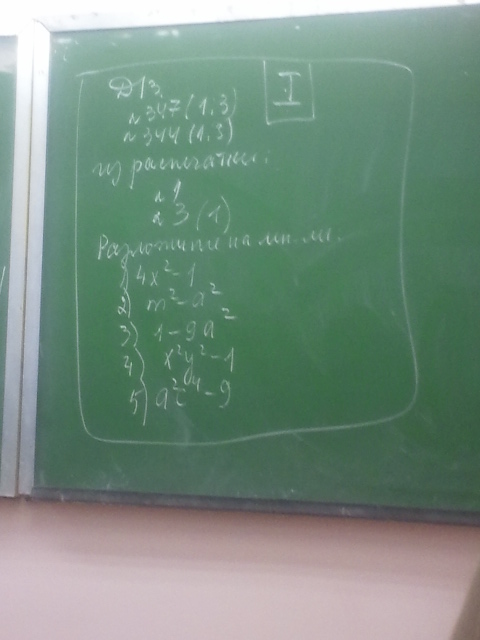 Д/З.
I
№ 347 (1,3)
№ 344 (1,3)
из распечатки:
№ 1
№ 3 (1)
Разложите на мн-ли.
1) 4x² - 1
2) m² - a²
3) 1 - 9a²
4) x²y² - 1
5) a²c⁴ - 9